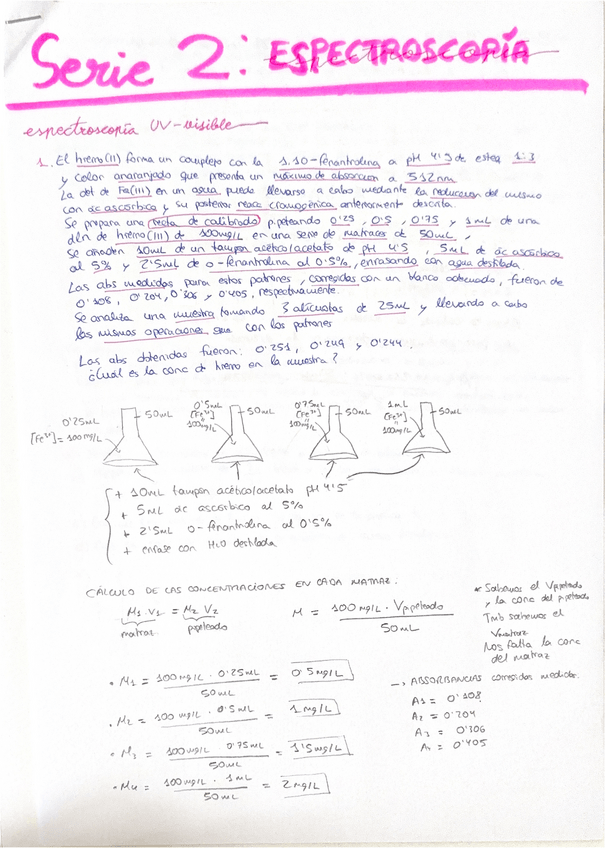 Serie 2: ESPECTROSCOPÍA
espectroscopía UV-visible
1. El hierro(II) forma un complejo con la 1,10-fenantrolina a pH 4'5 de esteq 1:3
y color anaranjado que presenta un máximo de absorción a 512nm
La det de Fe(III) en un agua puede llevarse a cabo mediante la reducción del mismo
con ác ascórbico y su posterior reacc cromogénica anteriormente descrita.
Se prepara una recta de calibrado pipeteando 0'25, 0'5, 0'75 y 1mL de una
dln de hierro(III) de 100mg/L en una serie de matraces de 50mL,
Se añaden 10mL de un tampón acético/acetato de pH 4'5, 5mL de ác ascórbico
al 5% y 2'5mL de o-fenantrolina al 0'5%, enrasando con agua destilada.
Las abs medidas para estos patrones, corregidas con un blanco adecuado, fueron de
0'108, 0'204, 0'306 y 0'405, respectivamente.
Se analiza una muestra tomando 3 alícuotas de 25mL y llevando a cabo
las mismas operaciones que con los patrones
Las abs obtenidas fueron: 0'251, 0'249 y 0'244.
¿Cuál es la conc de hierro en la muestra?
0'25mL
[Fe³⁺] = 100mg/L
50mL
0'5mL
[Fe³⁺]
=
100mg/L
50mL
0'75mL
[Fe³⁺]
=
100mg/L
50mL
1mL
[Fe³⁺]
=
100mg/L
50mL
+ 10mL tampón acético/acetato pH 4'5
+ 5mL ác ascórbico al 5%
+ 2'5mL o-fenantrolina al 0'5%
+ enrase con H2O destilada
CÁLCULO DE LAS CONCENTRACIONES EN CADA MATRAZ.
M1 V1 = M2 V2
matraz pipeteado
M = 100mg/L · Vpipeteado / 50mL
* Sabemos el Vpipeteado
y la conc del pipeteado
Tmb sabemos el
Vmatraz
Nos falta la conc
del matraz
• M1 = 100mg/L · 0'25mL / 50mL = 0'5mg/L
• M2 = 100mg/L · 0'5mL / 50mL = 1mg/L
• M3 = 100mg/L · 0'75mL / 50mL = 1'5mg/L
• M4 = 100mg/L · 1mL / 50mL = 2mg/L
→ ABSORBANCIAS corregidas medidas.
A1 = 0'108
A2 = 0'204
A3 = 0'306
A4 = 0'405